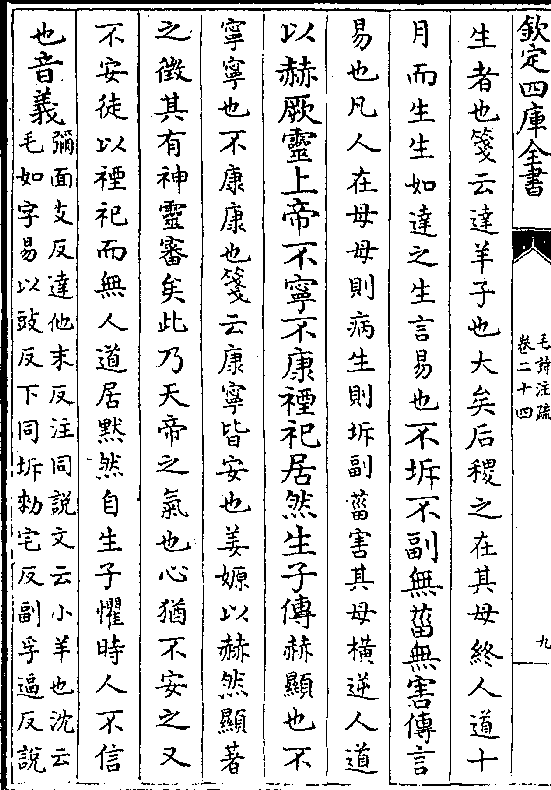 欽定四庫全書
毛詩注疏
卷二十四
九
生者也箋云達羊子也大矣后稷之在其母終人道十
月而生生如達之生言易也不坼不副無菑無害傳言
易也凡人在母母則病生則坼副菑害其母橫逆人道
以赫厥靈上帝不寧不康禋祀居然生子傳赫顯也不
寧寧也不康康也箋云康寧皆安也姜嫄以赫然顯著
之徵其有神靈審矣此乃天帝之氣也心猶不安之又
不安徒以禋祀而無人道居黙然自生子懼時人不信
也音義
彌面支反達他末反注同說文云小羊也沈云
毛如字易以豉反下同坼勑宅反副孚逼反說